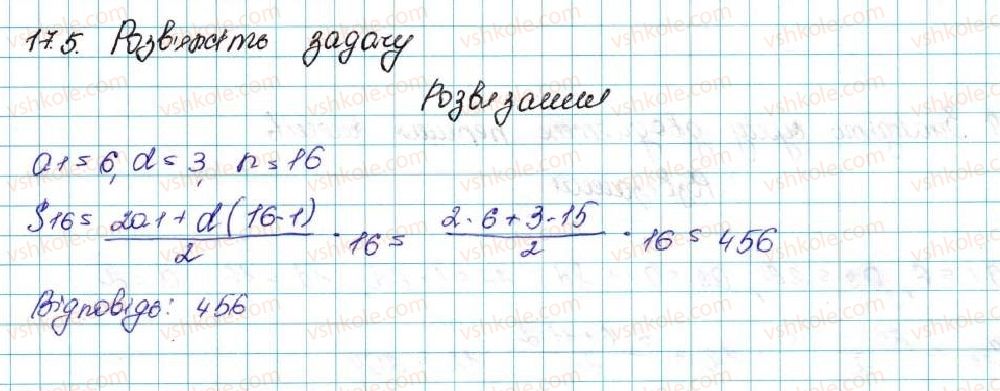 17.5. Розв'яжіть задачу
Розв'язання
a1 = 6, d = 3, n = 16
S16 = (2a1 + d(16-1))/2 · 16 = (2·6+3·15)/2 · 16 = 456
Відповідь: 456